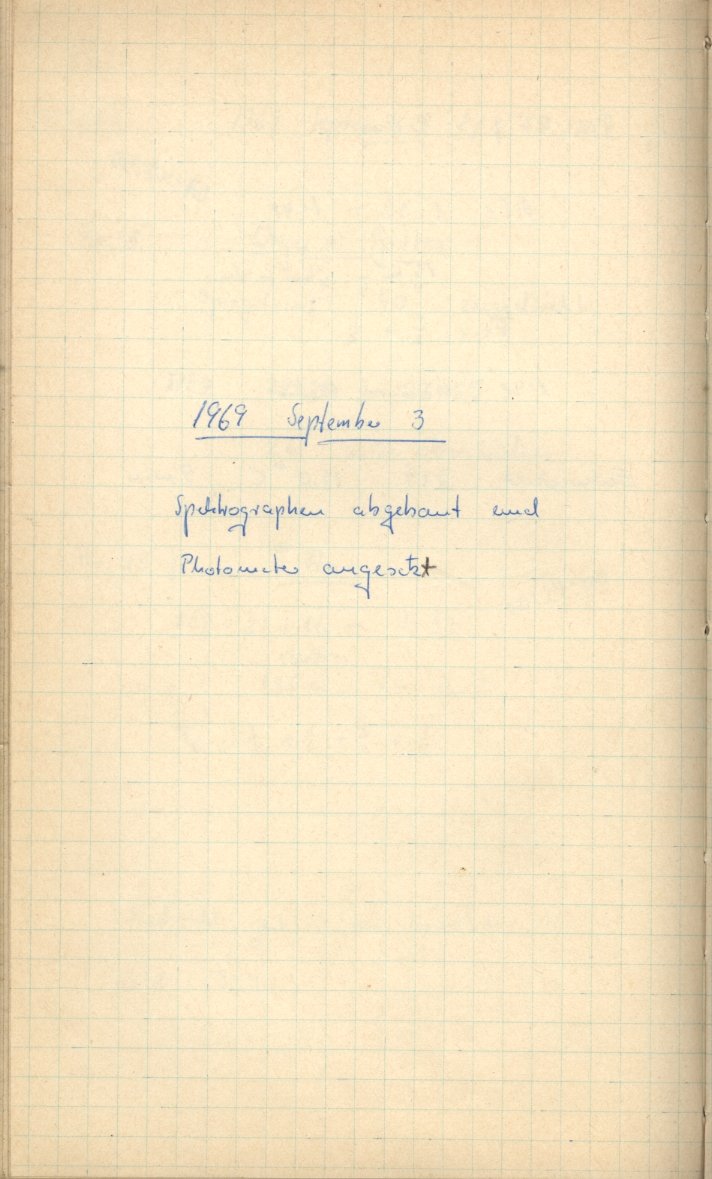 1969 September 3
Spektrographen abgebaut und
Photometer angesetzt